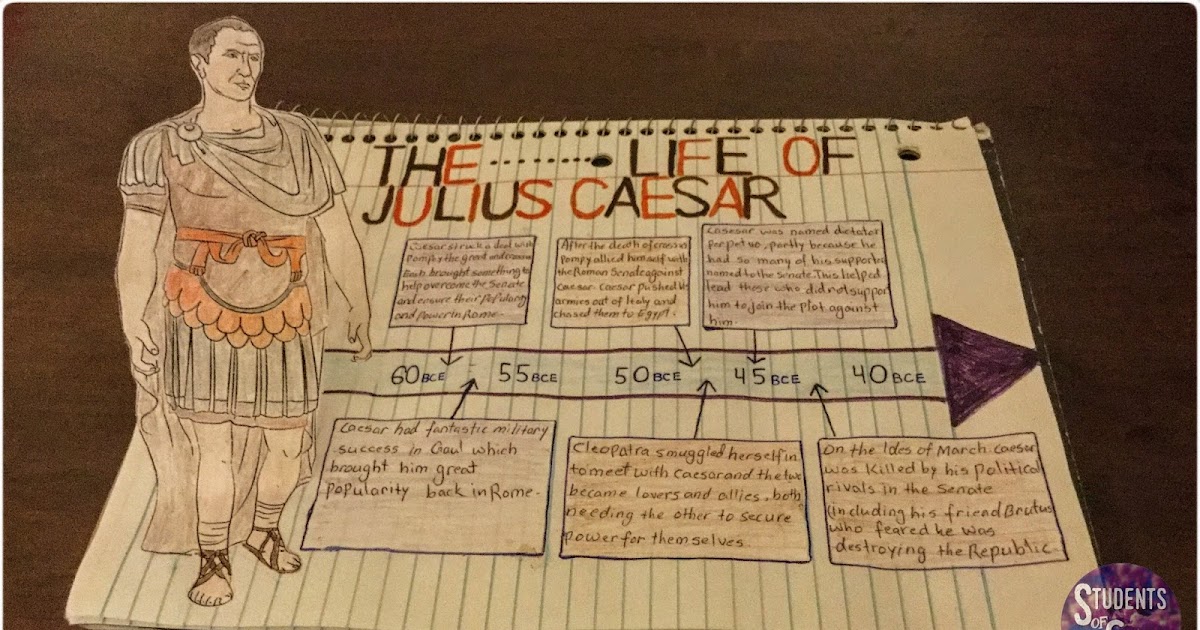 THE ......... LIFE OF
JULIUS CAESAR
Caesar struck a deal with
Pompy the great and crassus
Each brought something to
help overcome the Senate
and ensure their Popularity
and Power in Rome.
After the death of crassus
Pompy allied himself with
the Roman Senate against
Caesar. Caesar pushed his
armies out of Italy and
chased them to Egypt.
Casesar was named dictator
Perpetuo, partly because he
had so many of his supporters
named to the Senate. This helped
lead those who did not support
him to join the Plot against
him.
60 BCE 55 BCE 50 BCE 45 BCE 40 BCE
Caesar had fantastic military
success in Gaul which
brought him great
Popularity back in Rome.
Cleopatra smuggled herself in
to meet with Caesar and the two
became lovers and allies, both
needing the other to secure
power for themselves
On the Ides of March Caesar
was killed by his Political
rivals in the Senate
(including his friend Brutus
who feared he was
destroying the Republic
STUDENTS
OF